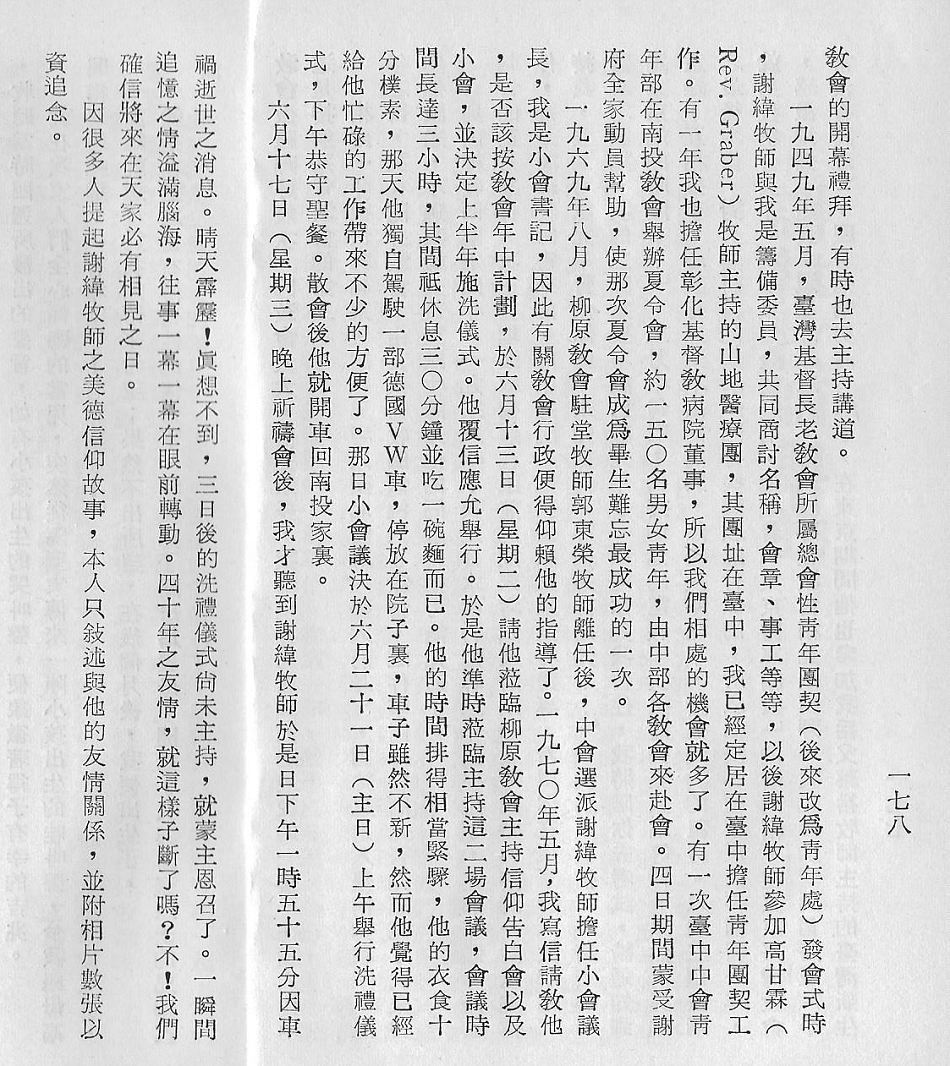 教會的開幕禮拜，有時也去主持講道。
一九四九年五月，臺灣基督長老教會所屬總會性靑年團契（後來改爲靑年處）發會式時
，謝緯牧師與我是籌備委員，共同商討名稱，會章、事工等等，以後謝緯牧師參加高甘霖（
Rev. Graber）牧師主持的山地醫療團，其團址在臺中，我已經定居在臺中擔任靑年團契工
作。有一年我也擔任彰化基督敎病院董事，所以我們相處的機會就多了。有一次臺中中會靑
年部在南投敎會舉辦夏令會，約一五〇名男女靑年，由中部各敎會來赴會。四日期間蒙受謝
府全家動員幫助，使那次夏令會成爲畢生難忘最成功的一次。
一九六九年八月，柳原敎會駐堂牧師郭東榮牧師離任後，中會選派謝緯牧師擔任小會議
長，我是小會書記，因此有關敎會行政便得仰賴他的指導了。一九七〇年五月，我寫信請敎他
，是否該按敎會年中計劃，於六月十三日（星期二）請他蒞臨柳原敎會主持信仰告白會以及
小會，並決定上半年施洗儀式。他覆信應允舉行。於是他準時蒞臨主持這二場會議，會議時
間長達三小時，其間祗休息三〇分鐘並吃一碗麵而已。他的時間排得相當緊驟，他的衣食十
分樸素，那天他獨自駕駛一部德國ＶＷ車，停放在院子裏，車子雖然不新，然而他覺得已經
給他忙碌的工作帶來不少的方便了。那日小會議決於六月二十一日（主日）上午舉行洗禮儀
式，下午恭守聖餐。散會後他就開車回南投家裏。
六月十七日（星期三）晚上祈禱會後，我才聽到謝緯牧師於是日下午一時五十五分因車
禍逝世之消息。晴天霹靂！眞想不到，三日後的洗禮儀式尙未主持，就蒙主恩召了。一瞬間
追憶之情溢滿腦海，往事一幕一幕在眼前轉動。四十年之友情，就這樣子斷了嗎？不！我們
確信將來在天家必有相見之日。
因很多人提起謝緯牧師之美德信仰故事，本人只敍述與他的友情關係，並附相片數張以
資追念。
一七八